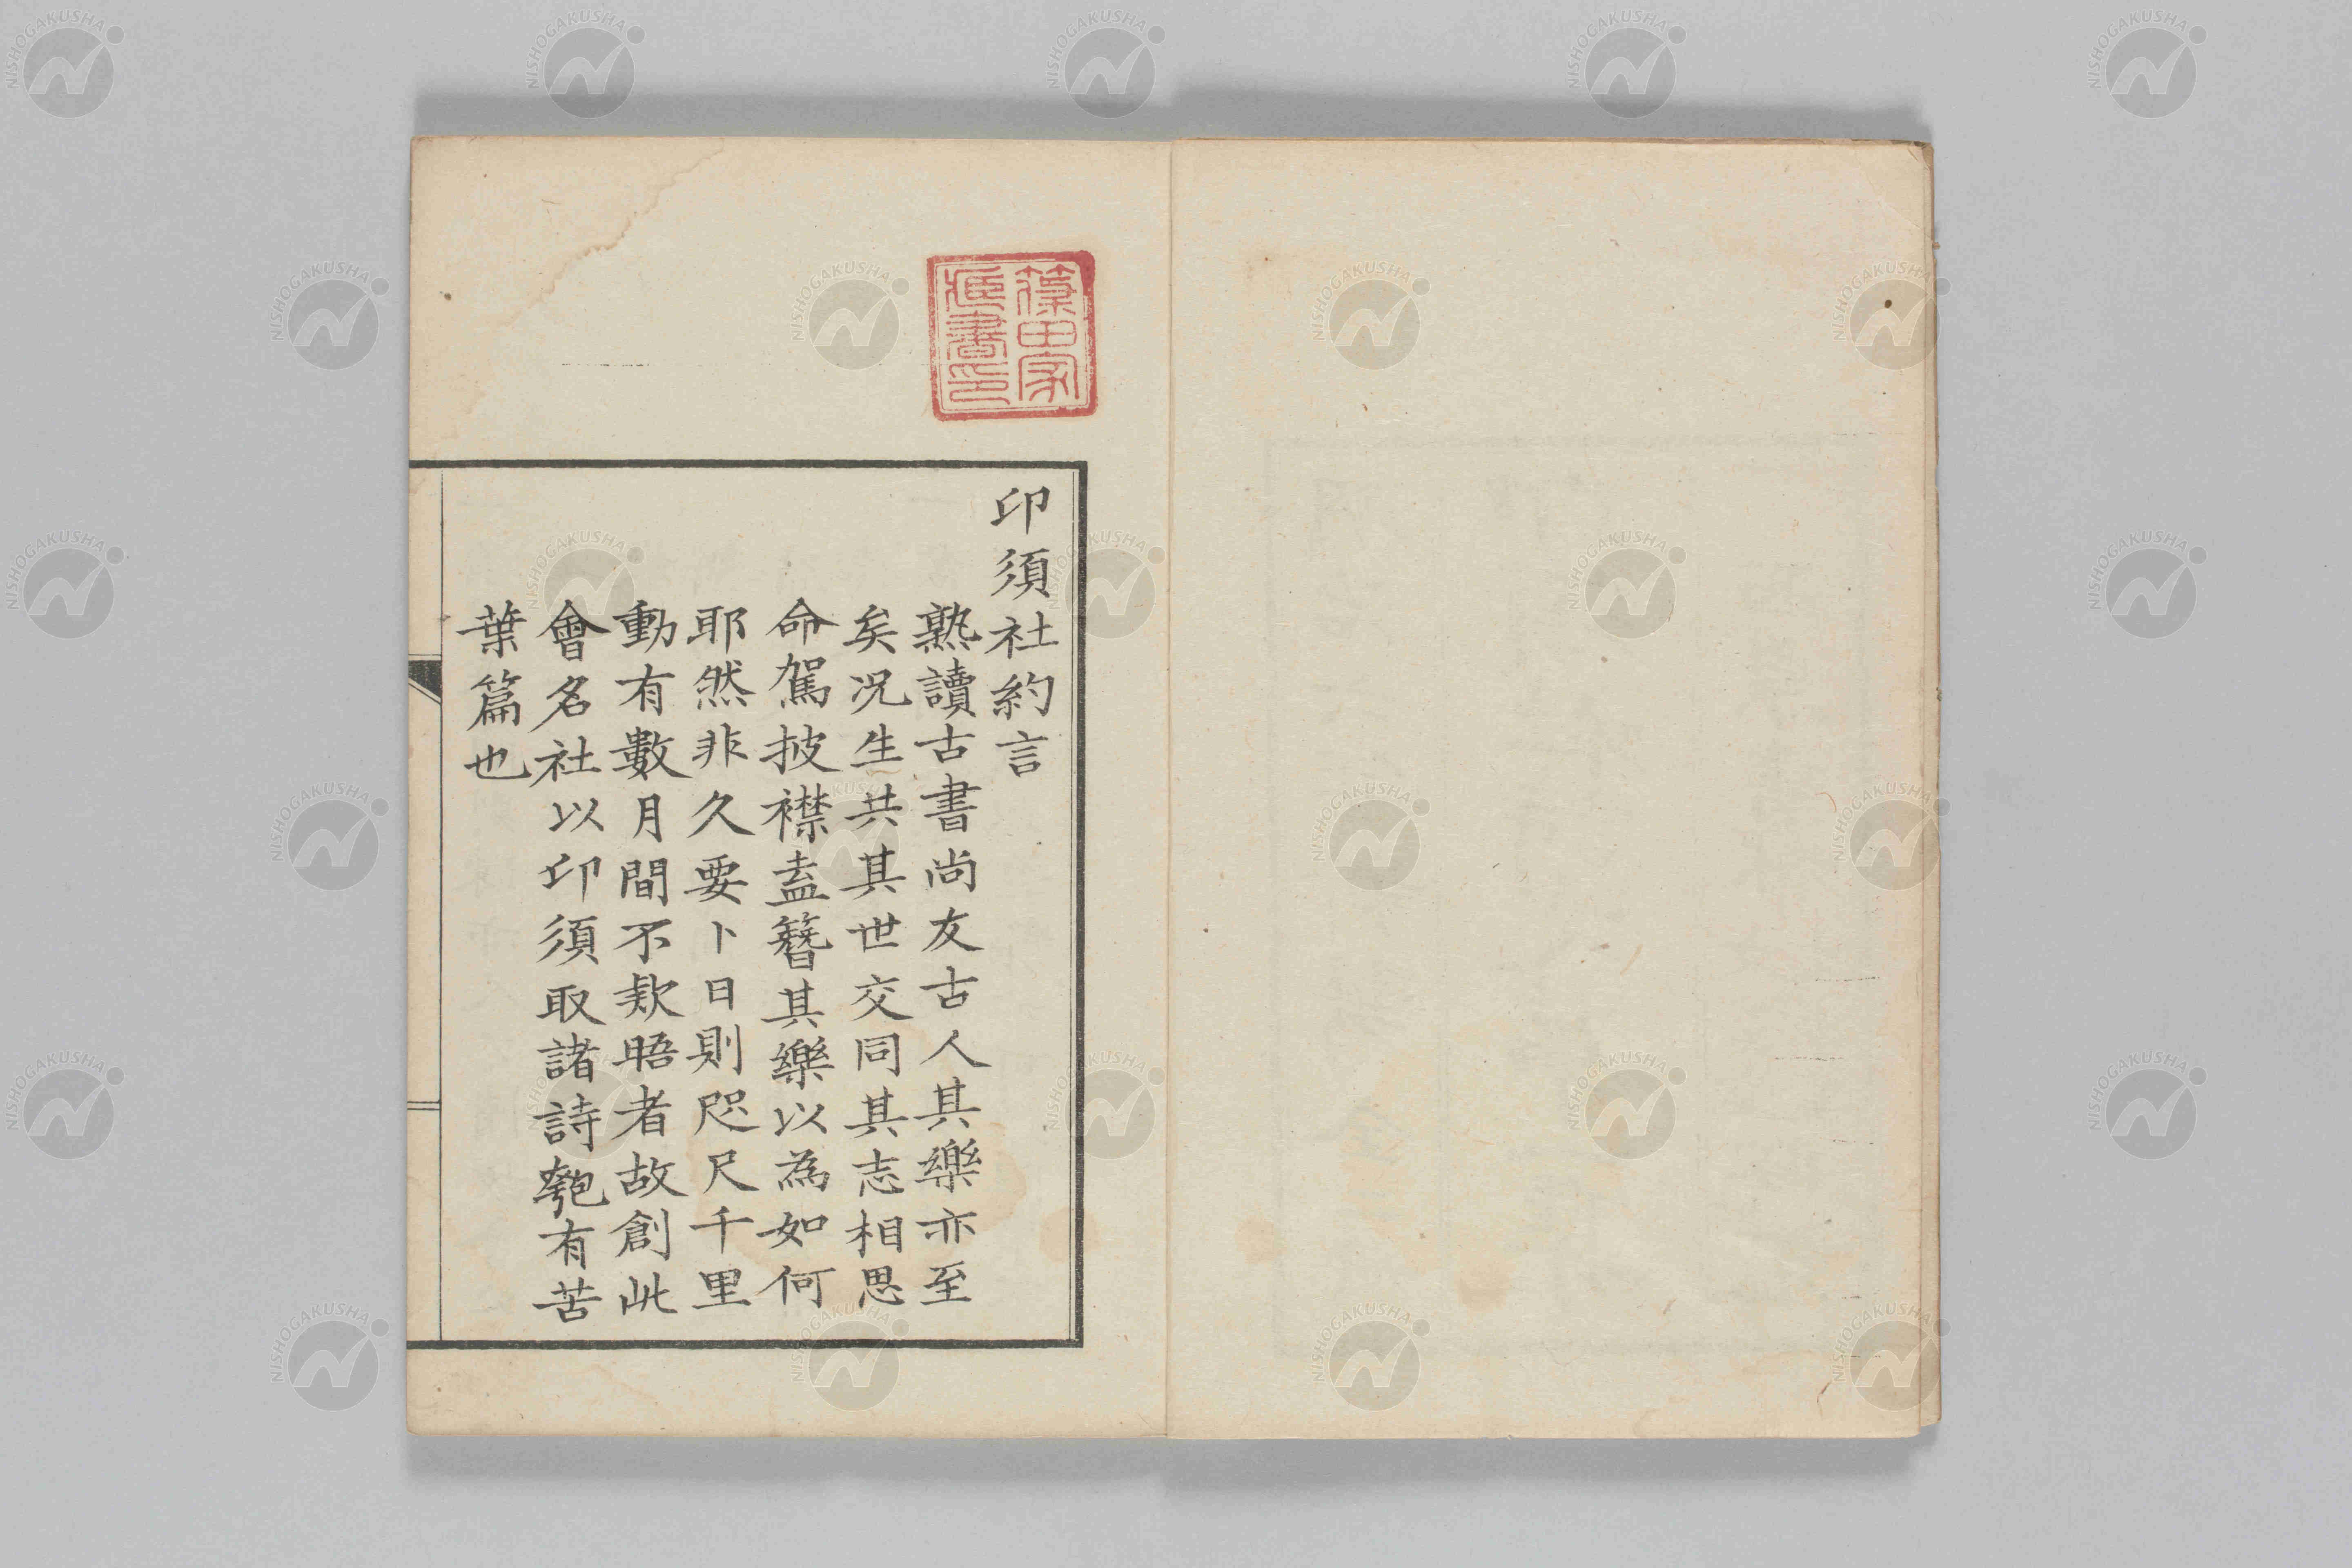 篠田家
藏書印
卬須社約言
熟讀古書尚友古人其樂亦至
矣况生共其世交同其志相思
命駕披襟盍簪其樂以為如何
耶然非久要卜日則咫尺千里
動有數月間不欵晤者故創此
會名社以卬須取諸詩匏有苦
葉篇也
NISHOGAKUSHA